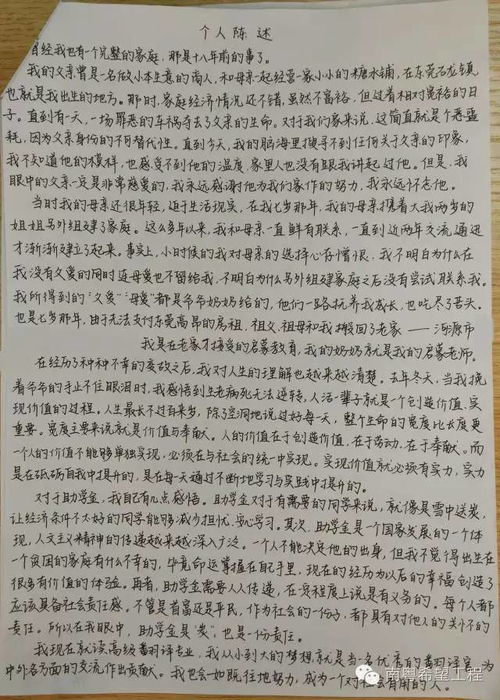 个人陈述
曾经我也有一个完整的家庭，那是十八年前的事了。
我的父亲曾是一名做小本生意的商人，和母亲一起经营一家小小的糖水铺，在东莞石龙镇，
也就是我出生的地方。那时，家庭经济情况还不错，虽然不富裕，但过着相对宽裕的日
子。直到有一天，一场罪恶的车祸夺去了父亲的生命。对于我们家来说，这简直就是个噩
耗，因为父亲身份的不可替代性。直到今天，我的脑海里搜寻不到任何关于父亲的印象，
我不知道他的模样，也感受不到他的温度，家里人也没有跟我讲起过他。但是，我
眼中的父亲一定是非常感爱的，我永远感谢他为我们家作的努力，我永远怀念他。
当时我的母亲还很年轻，迫于生活现实，在我七岁那年，我的母亲携着大我两岁的
姐姐另外组建了家庭。这么多年以来，我和母亲一直鲜有联系，一直到近两年交流通迅
才渐渐建立了起来。事实上，小时候的我对母亲的选择心存憎恨，我不明白为什么在
我没有父爱的同时连母爱也不留给我，不明白为什么另外组建家庭之后没有尝试联系我。
我所得到的“父爱”“母爱”都是爷爷奶奶给的，他们一路抚养我成长，也吃尽了苦头。
也是七岁那年，由于无法支付东莞高昂的房租，祖父、祖母和我搬回了老家——河源市
我是在老家才接受的启蒙教育，我的奶奶就是我的启蒙老师。
在经历了种种不幸的变故之后，我对人生的理解也越来越清楚。去年冬天，当我挽
着爷爷的手止不住眼泪时，我感悟到生老病死无法逆转，人活一辈子就是一个创造价值、实
现价值的过程。人生最长不过百来岁，除了空洞地说过好每一天，整个生命的宽度比长度更
重要。宽度主要来说就是价值与奉献。人的价值在于创造价值，在于劳动，在于奉献。而
一个人的价值不能够单独实现，必须在与社会的统一中实现。实现价值就必须有实力，实力
是在砥砺自我中提升的，是在每天通过不断地学习与实践中提升的。
对于助学金，我自己有几点感悟。助学金对于有需要的同学来说，就像是雪中送炭，
让经济条件不太好的同学能够减少担忧，安心学习。其次，助学金是一个国家发展的一个体
现，人文主义精神的传递越来越深入广泛。一个人不能决定他的出身，但我不觉得出生在
一个贫困的家庭有什么不幸的，毕竟命运掌握在自己手里，现在的经历为以后的幸福创造了
很多有价值的体验。再者，助学金需要人人传递，在某程度上说是有义务的。每个人都
应该具备社会责任感，不管是首富还是平民，作为社会的一份子，都具有对他人的关怀的
责任。所以在我眼中，助学金是“炭”，也是一份责任。
我现在就读高级翻译专业，我从小到大的梦想就是当一名优秀的翻译官，为
中外各方面的交流作出贡献。我也会如既往地努力，成为一个对社会有用的人。
南粤希望工程